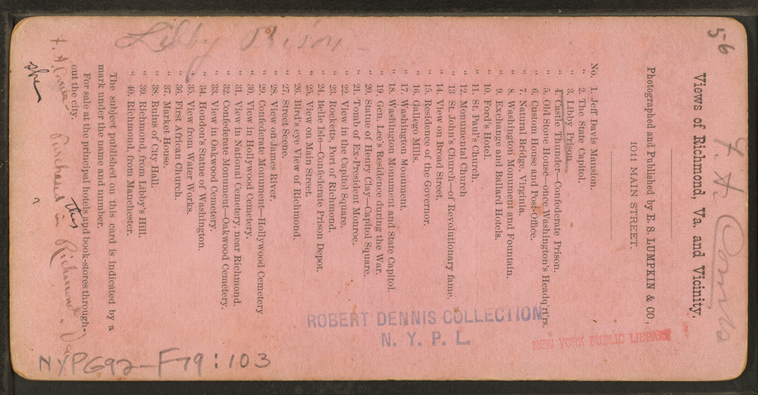 56
F. A. Comb
Views of Richmond, Va. and Vicinity.
Photographed and Published by E. S. LUMPKIN & CO.,
1011 MAIN STREET.
No. 1. Jeff Davis Mansion.
" 2. The State Capitol.
" 3. Libby Prison.
" 4. Castle Thunder—Confederate Prison.
" 5. Old Stone House—once Washington's Headq'rt'rs.
" 6. Custom House and Post Office.
" 7. Natural Bridge, Virginia.
" 8. Washington Monument and Fountain.
" 9. Exchange and Ballard Hotels.
" 10. Ford's Hotel.
" 11. St. Paul's Church.
" 12. Monumental Church
" 13 St. John's Church—of Revolutionary fame.
" 14. View on Broad Street.
" 15. Residence of the Governor.
" 16. Gallego Mills.
" 17. Washington Monument.
" 18. Washington Monument and State Capitol.
" 19. Gen. Lee's Residence during the War.
" 20. Statue of Henry Clay—Capitol Square.
" 21. Tomb of Ex-President Monroe.
" 22. View in the Capitol Square.
" 23. Rocketts, Port of Richmond.
" 24. Belle Isle—Confederate Prison Depot.
" 25. View on Main Street.
" 26. Bird's eye View of Richmond.
" 27. Street Scene.
" 28. View on James River.
" 29. Confederate Monument—Hollywood Cemetery
" 30. View in Hollywood Cemetery.
" 31. View in National Cemetery, near Richmond.
" 32. Confederate Monument—Oakwood Cemetery.
" 33. View in Oakwood Cemetery.
" 34. Houdon's Statue of Washington.
" 35. View from Water Works.
" 36. First African Church.
" 37. Market House.
" 38. Ruins of City Hall.
" 39. Richmond, from Libby's Hill.
" 40. Richmond, from Manchester.
The subject published on this card is indicated by a
mark under the name and number.
For sale at the principal hotels and book-stores through-
out the city.
Libby Prison
Purchased in Richmond Va
this
ROBERT DENNIS COLLECTION
N. Y. P. L.
NEW YORK PUBLIC LIBRARY
NYPG92-F79:103